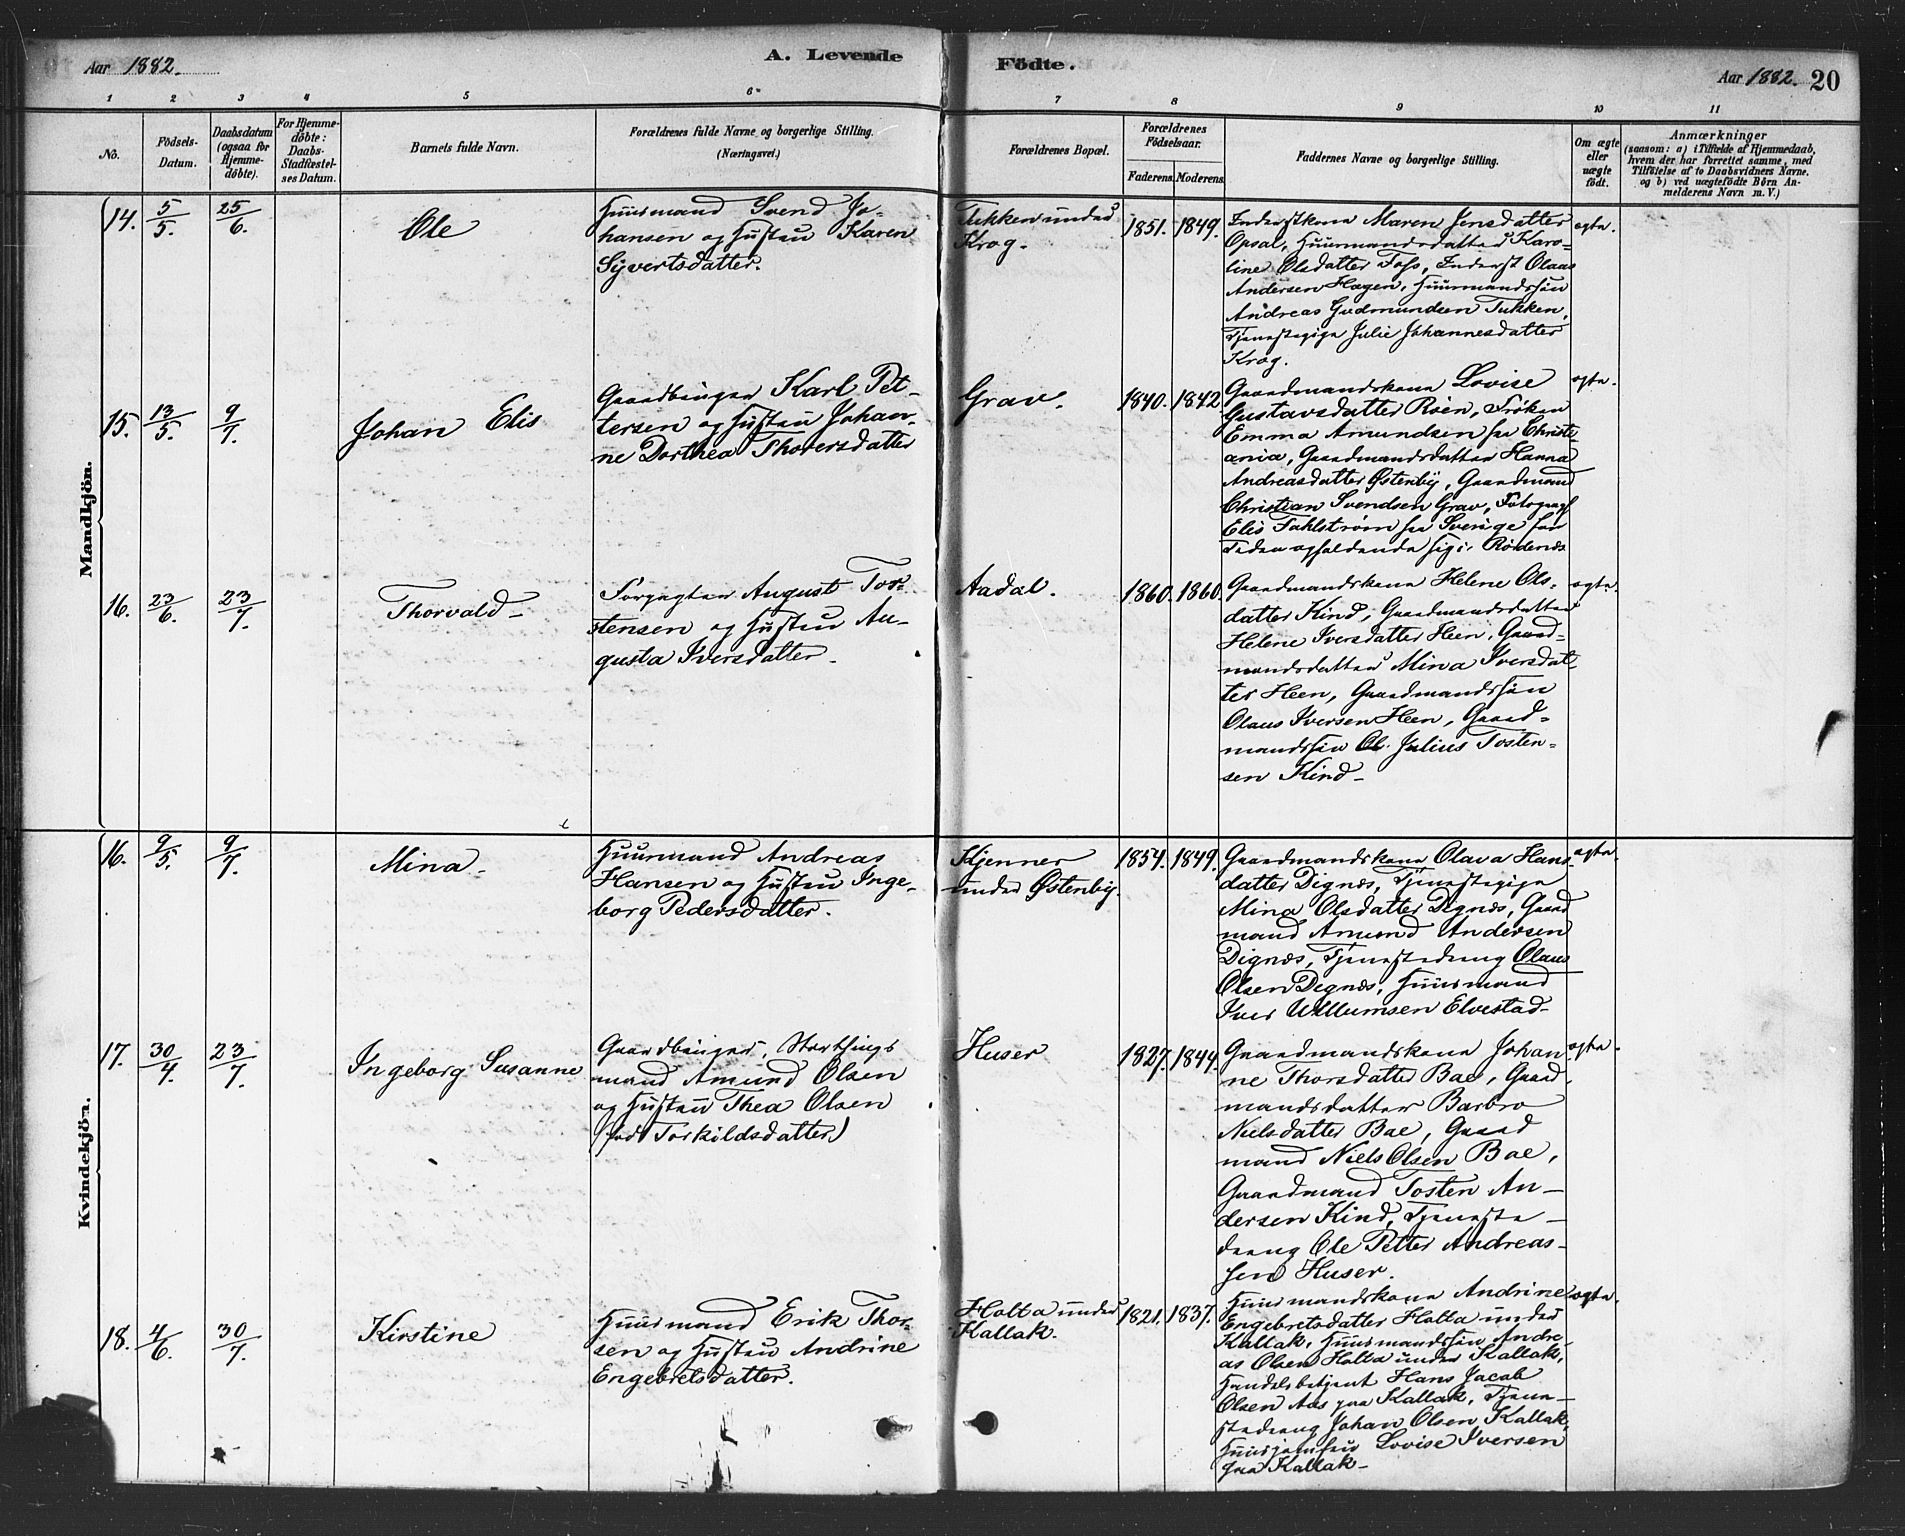 Aar 1882.
A. Levende
Födte.
Aar 1882. 20
1 2 3 4 5 6 7 8 9 10 11
No.
Födsels-
Datum.
Daabsdatum
(ogsaa for
Hjemme-
döbte).
For Hjemme-
döbte:
Daabs-
Stadfæstel-
ses Datum.
Barnets fulde Navn.
Forældrenes fulde Navne og borgerlige Stilling.
(Næringsvei.)
Forældrenes Bopæl.
Forældrenes
Födselsaar.
Faderens. Moderens.
Faddernes Navne og borgerlige Stilling.
Om ægte
eller
uægte
födt.
Anmærkninger
(saasom: a) i Tilfælde af Hjemmedaab,
hvem der har forrettet samme, med
Tilföielse af to Daabsvidners Navne.
og b) ved uægtefödte Börn An-
melderens Navn m. V.)
Mandkjön.
14. 5/5. 25/6. Ole
Huusmand Svend Jo-
hansen og Hustru Karen
Syvertsdatter.
Tukken under
Krog.
1851. 1849.
Inderstkone Maren Jensdatter
Opsal, Huusmandsdatter Karo-
line Olsdatter Foss, Inderst Olaus
Andersen Hagen, Huusmandssön
Andreas Gudmundsen Tukken,
Tjenestepige Julie Johannesdatter
Krog.
ægte.
15. 13/5. 9/7. Johan Elis
Gaardbruger Karl Pet-
tersen og Hustru Johan-
ne Dorthea Thoversdatter
Grav.
1840. 1842
Gaardmandskone Lovise
Gustavsdatter Röen, Fröken
Emma Amundsen fra Christi-
ania, Gaardmandsdatter Hanna
Andreasdatter Østenby, Gaardmand
Christian Svendsen Grav, Fotograf
Elis Fahlström fra Sverige for
Tiden opholdende sig i Rödenes
ægte.
16. 23/6. 23/7. Thorvald
Forpagter August Tor-
stensen og Hustru Au-
gusta Iversdatter.
Aadal.
1860. 1860.
Gaardmandskone Helene Ols-
datter Kind, Gaardmandsdatter
Helene Iversdatter Heen, Gaard-
mandsdatter Mina Iversdat-
ter Heen, Gaardmandssön
Olaus Iversen Heen, Gaard-
mandssön Ol. Julius Tosten-
sen Kind
ægte.
Kvindekjön.
16. 9/5. 9/7. Mina
Huusmand Andreas
Hansen og Hustru Inge-
borg Pedersdatter.
Kjenner
under Østenby.
1854. 1849.
Gaardmandskone Olava Hans-
datter Dignæs, Tjenestepige
Mina Olsdatter Dignæs, Gaard
mand Amund Andersen
Dignæs, Tjenestedreng Olaus
Olsen Dignæs, Huusmand
Iver Willumsen Elvestad
ægte.
17. 30/4. 23/7. Ingeborg Susanne
Gaardbruger, Storthings
mand Amund Olsen
og Hustru Thea Olsen
(född Torkildsdatter)
Huser
1827. 1844.
Gaardmandskone Johan
ne Thorsdatter Bae, Gaard
mandsdatter Barbro
Nielsdatter Bae, Gaard
mand Niels Olsen Bae,
Gaardmand Tosten An-
dersen Kind, Tjeneste-
dreng Ole Petter Andreas-
sen Huser.
ægte.
18. 4/6. 30/7. Kirstine
Huusmand Erik Thor-
sen og Hustru Andrine
Engebretsdatter.
Holta under
Kallak.
1821. 1837.
Huusmandskone Andrine
Engebretsdatter Holta under
Kallak, Huusmandssön Andre-
as Olsen Holta under Kallak,
Handelsbetjent Hans Jacob
Olsen Aas paa Kallak, Tjene-
stedreng Johan Olsen Kallak,
Huusjomfru Lovise Iversen
paa Kallak
ægte.